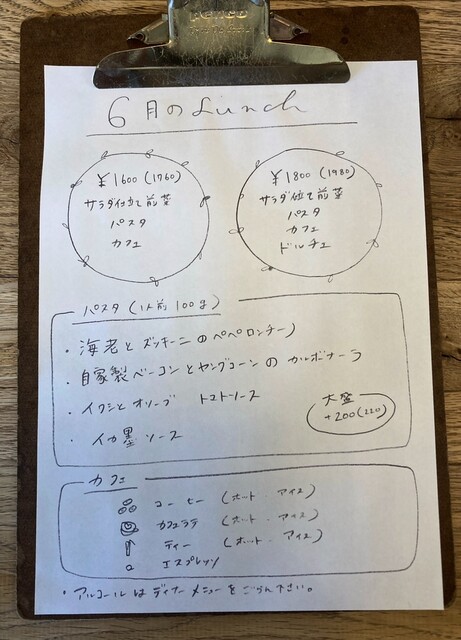 6月のLunch
¥1600(1760)
サラダ仕立て前菜
パスタ
カフェ
¥1800(1980)
サラダ仕立て前菜
パスタ
カフェ
ドルチェ
パスタ(1人前100g)
・海老とズッキーニのペペロンチーノ
・自家製ベーコンとヤングコーンのカルボナーラ
・イワシとオリーブ トマトソース
・イカ墨ソース
大盛
+200(220)
カフェ
コーヒー(ホット・アイス)
カフェラテ(ホット・アイス)
ティー(ホット・アイス)
エスプレッソ
・アルコールはディナーメニューをごらん下さい。